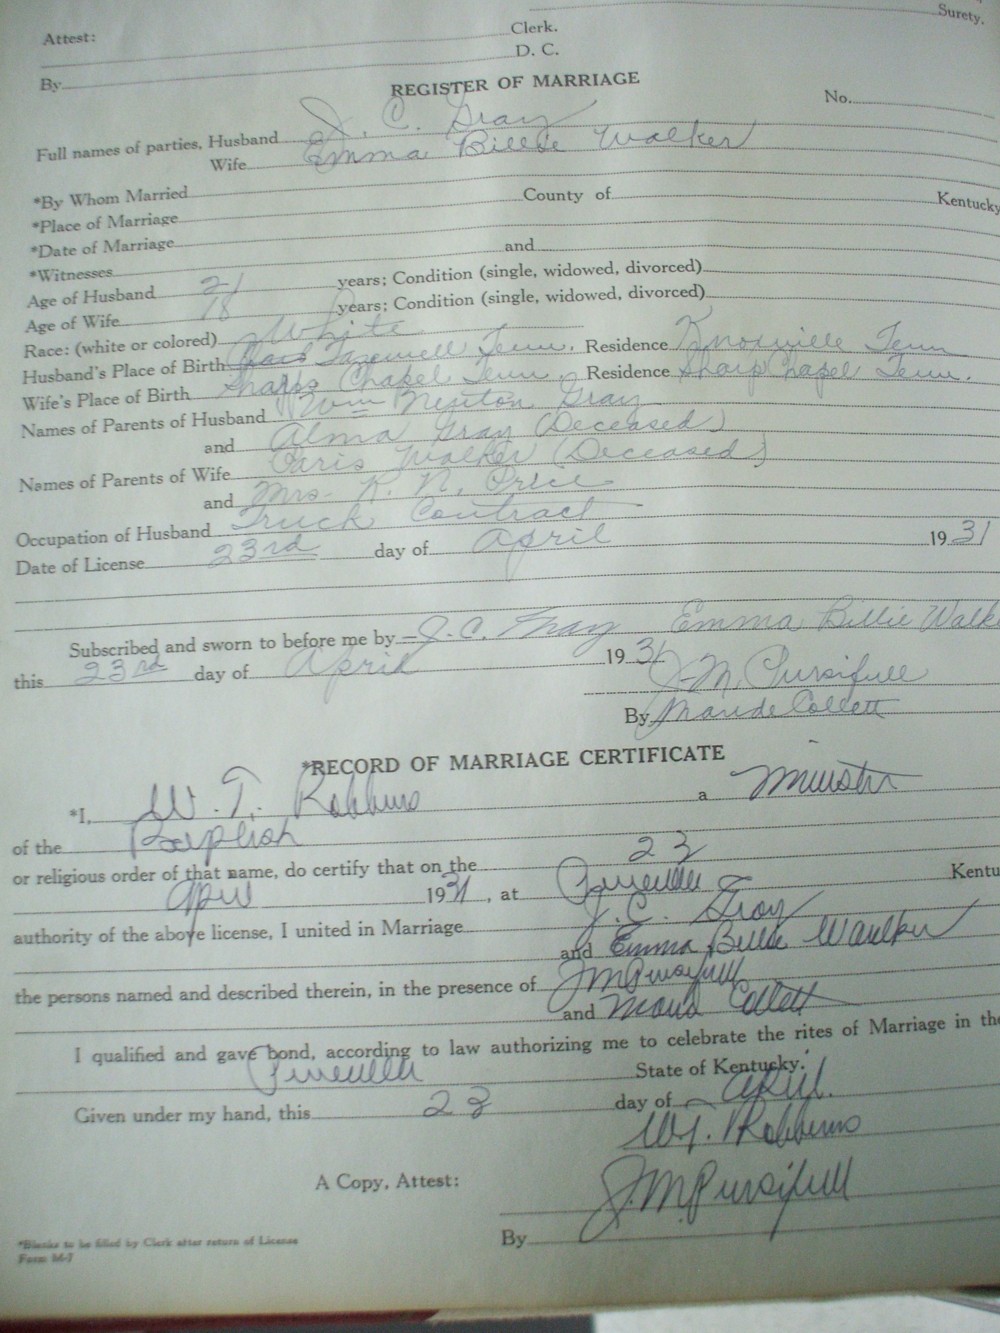 Surety.
Attest: Clerk.
D. C.
By
REGISTER OF MARRIAGE
No.
Full names of parties, Husband J. C. Gray
Wife Emma Billie Walker
*By Whom Married
*Place of Marriage County of Kentucky
*Date of Marriage
*Witnesses and
Age of Husband 21 years; Condition (single, widowed, divorced)
Age of Wife 18 years; Condition (single, widowed, divorced)
Race: (white or colored) White
Husband's Place of Birth Tazewell Tenn. Residence Knoxville Tenn
Wife's Place of Birth Sharps Chapel Tenn. Residence Sharp Chapel Tenn.
Names of Parents of Husband Wm Newton Gray
and Alma Gray (Deceased)
Names of Parents of Wife Paris Walker (Deceased)
and Mrs. R. N. Price
Occupation of Husband Truck Contract
Date of License 23rd day of April 1931
Subscribed and sworn to before me by J. C. Gray Emma Billie Walk
this 23rd day of April 1931
J. M. Pursifull
By Maude Collett
*RECORD OF MARRIAGE CERTIFICATE
*I, W. T. Robbins a Minister
of the Baptist
or religious order of that name, do certify that on the 23
April 1931, at Pineville Kentu
authority of the above license, I united in Marriage J. C. Gray
and Emma Billie Waulker
the persons named and described therein, in the presence of J M Pursifull
and Maud Collett
I qualified and gave bond, according to law authorizing me to celebrate the rites of Marriage in the
Pineville State of Kentucky.
Given under my hand, this 23 day of April.
W. T. Robbins
A Copy, Attest: J. M. Pursifull
By
*Blanks to be filled by Clerk after return of License
Form M-7